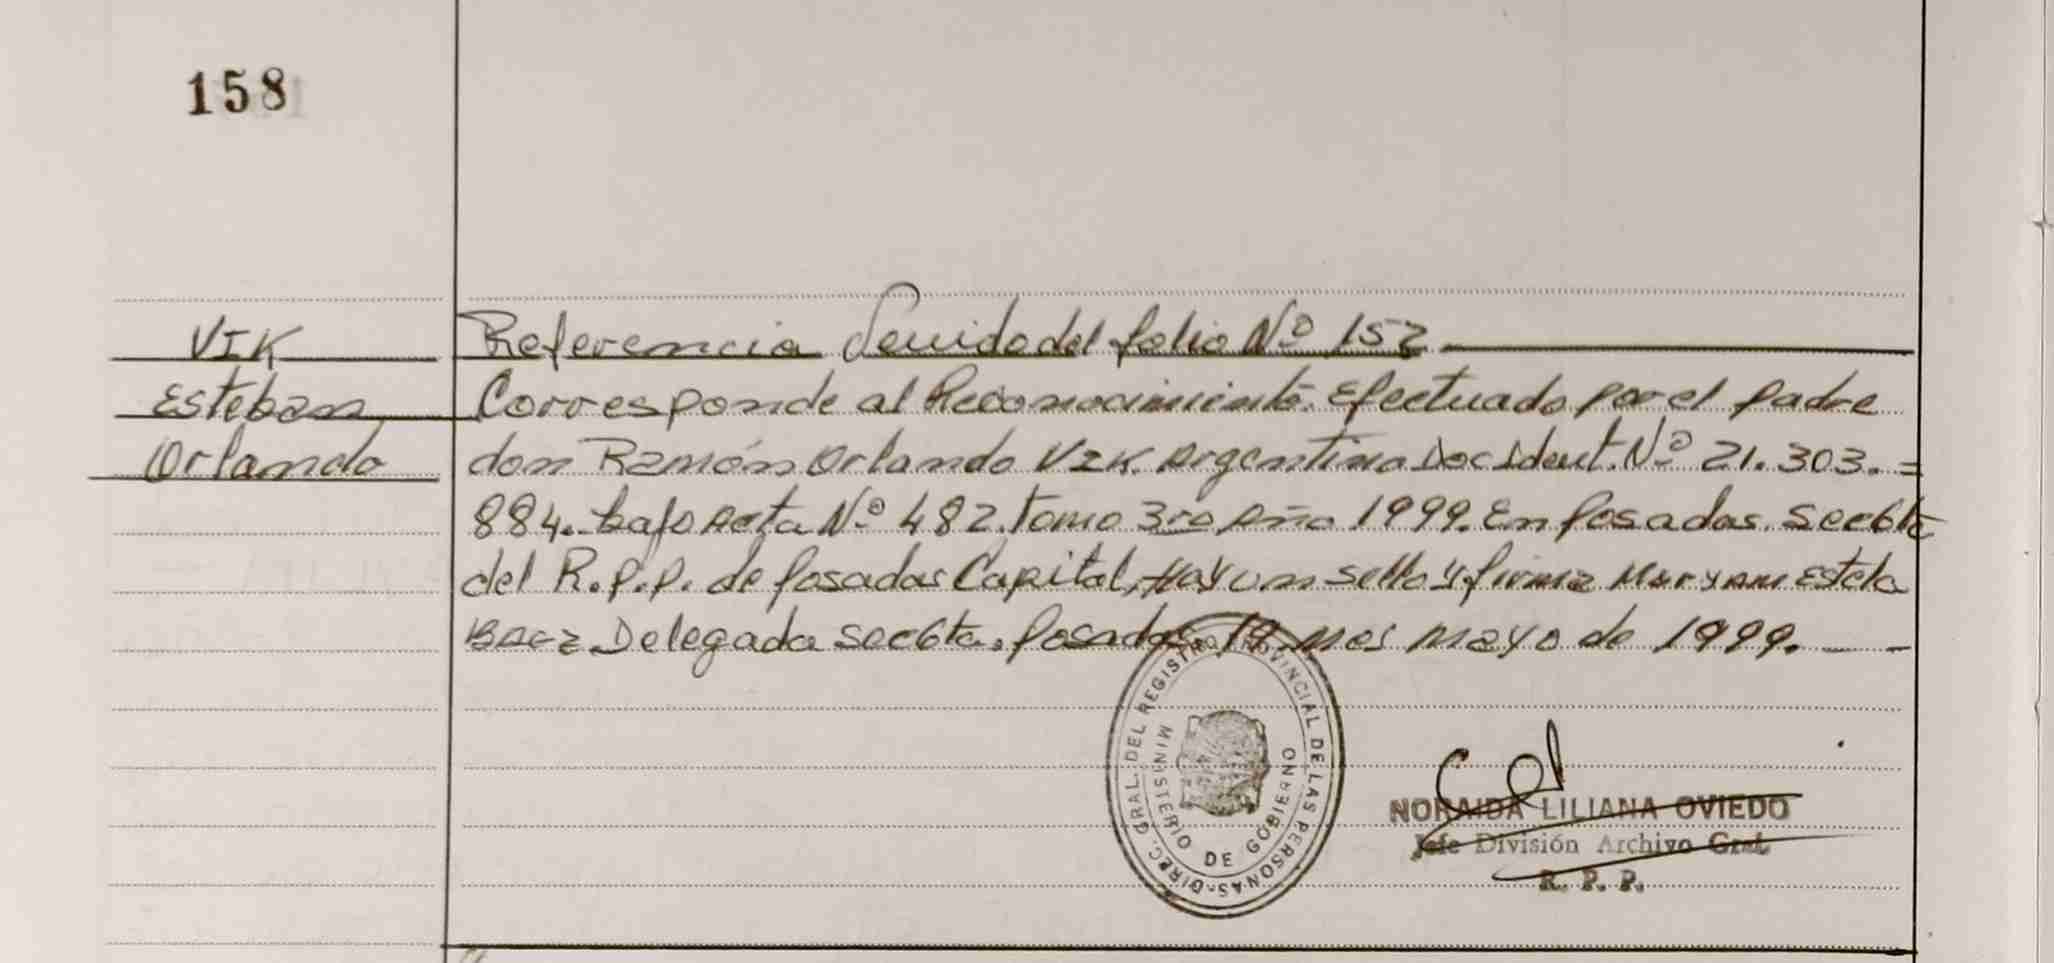 158
VIK
Esteban
Orlando
Referencia Venido del folio Nº 152
Corresponde al Reconocimiento. Efectuado por el padre
don Ramón Orlando VIK. Argentino Doc Ident. Nº 21.303.=
884. bajo acta Nº 482. Tomo 3ro Año 1999. En Posadas. Secc 6ta
del R.P.P. de Posadas Capital, Hay un sello y firma Maryam Estela
Baez Delegada Secc 6ta. Posadas 19 mes mayo de 1999.
DIREC. GRAL. DEL REGISTRO PROVINCIAL DE LAS PERSONAS
MINISTERIO DE GOBIERNO
NORAIDA LILIANA OVIEDO
Jefe División Archivo Gral.
R. P. P.